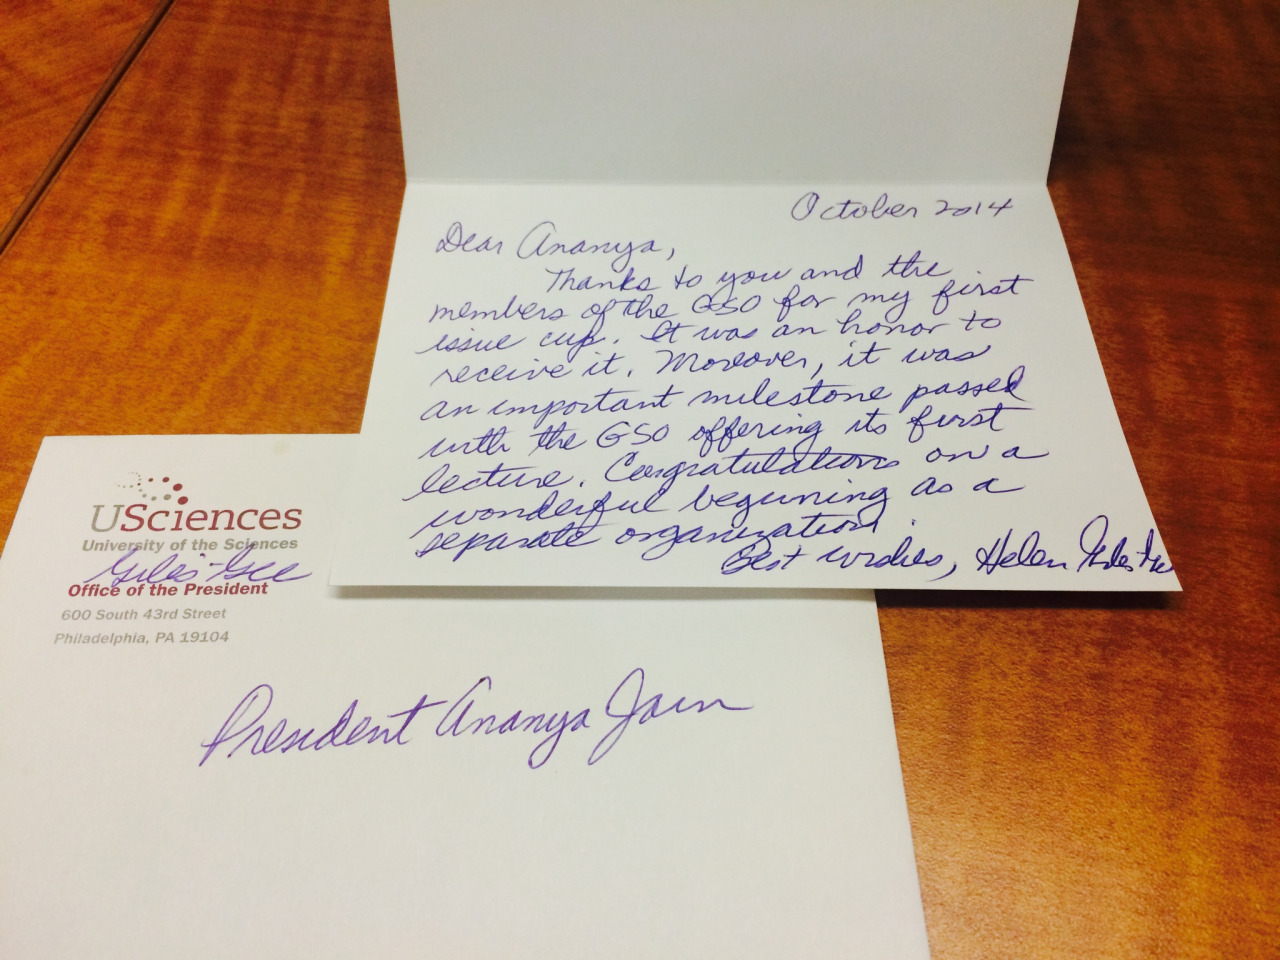 October 2014
Dear Ananya,
Thanks to you and the
members of the GSO for my first
issue cup. It was an honor to
receive it. Moreover, it was
an important milestone passed
with the GSO offering its first
lecture. Congratulations on a
wonderful beginning as a
separate organization.
Best wishes, Helen Giles-Gee
USciences
University of the Sciences
Giles-Gee
Office of the President
600 South 43rd Street
Philadelphia, PA 19104
President Ananya Jain